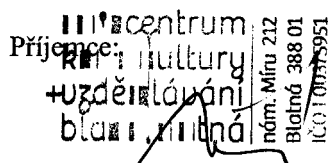 Příjemce:
centrum
kultury
+vzdělávání
blatná
nám. Míru 212
Blatná 388 01